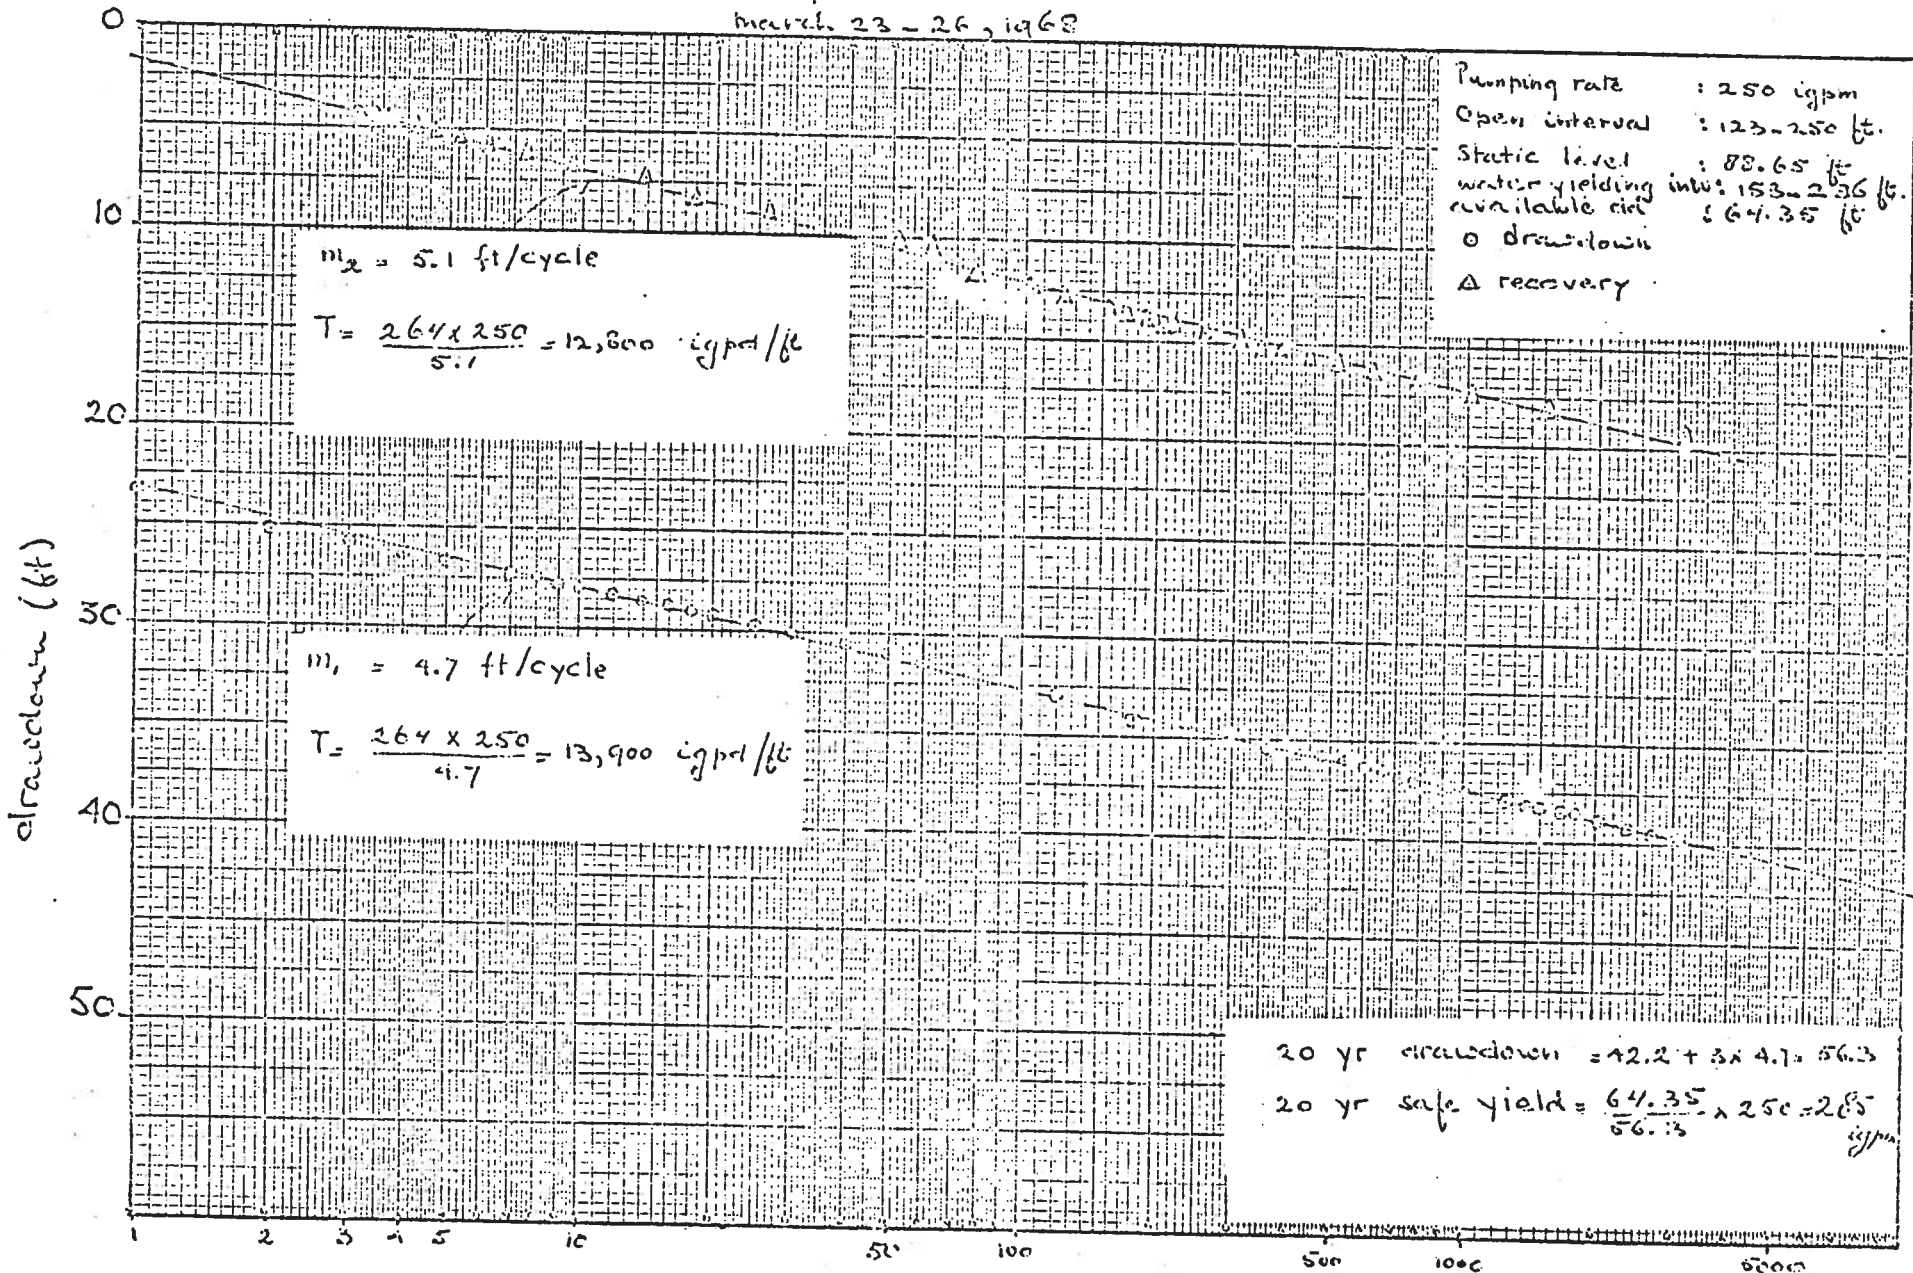 March 23-26, 1968
0
10
20
30
40
50
drawdown (ft)
Pumping rate : 250 igpm
Open interval : 123-250 ft.
Static level : 88.65 ft
water yielding intv: 153-236 ft.
available dd : 64.35 ft
o drawdown
△ recovery
m₂ = 5.1 ft/cycle
T = 264 x 250 / 5.1 = 12,800 igpd/ft
m₁ = 4.7 ft/cycle
T = 264 x 250 / 4.7 = 13,900 igpd/ft
20 yr drawdown = 42.2 + 3x 4.7 = 56.3
20 yr safe yield = 64.35 / 56.3 x 250 = 285 igpm
1 2 3 4 5 10 50 100 500 1000 5000